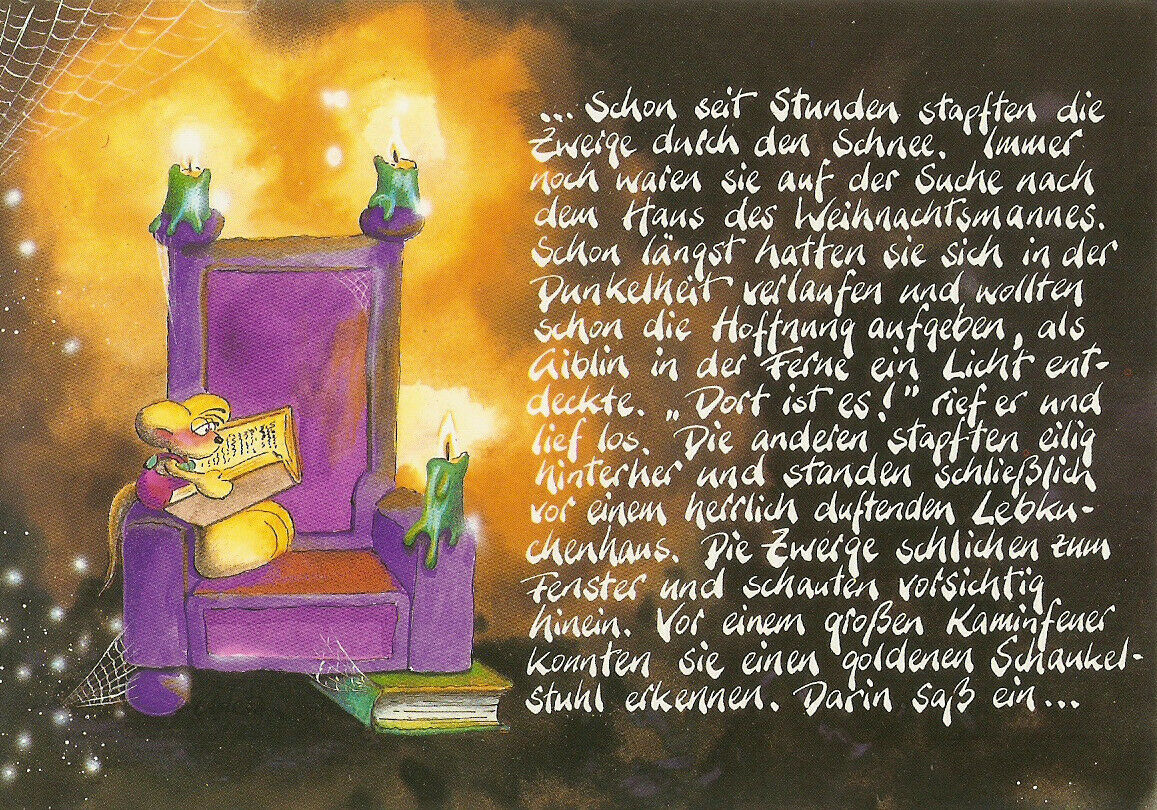 ... Schon seit Stunden stapften die
Zwerge durch den Schnee. Immer
noch waren sie auf der Suche nach
dem Haus des Weihnachtsmannes.
Schon längst hatten sie sich in der
Dunkelheit verlaufen und wollten
schon die Hoffnung aufgeben, als
Giblin in der Ferne ein Licht ent-
deckte. „Dort ist es!" rief er und
lief los. Die anderen stapften eilig
hinterher und standen schließlich
vor einem herrlich duftenden Lebku-
chenhaus. Die Zwerge schlichen zum
Fenster und schauten vorsichtig
hinein. Vor einem großen Kaminfeuer
konnten sie einen goldenen Schaukel-
stuhl erkennen. Darin saß ein...